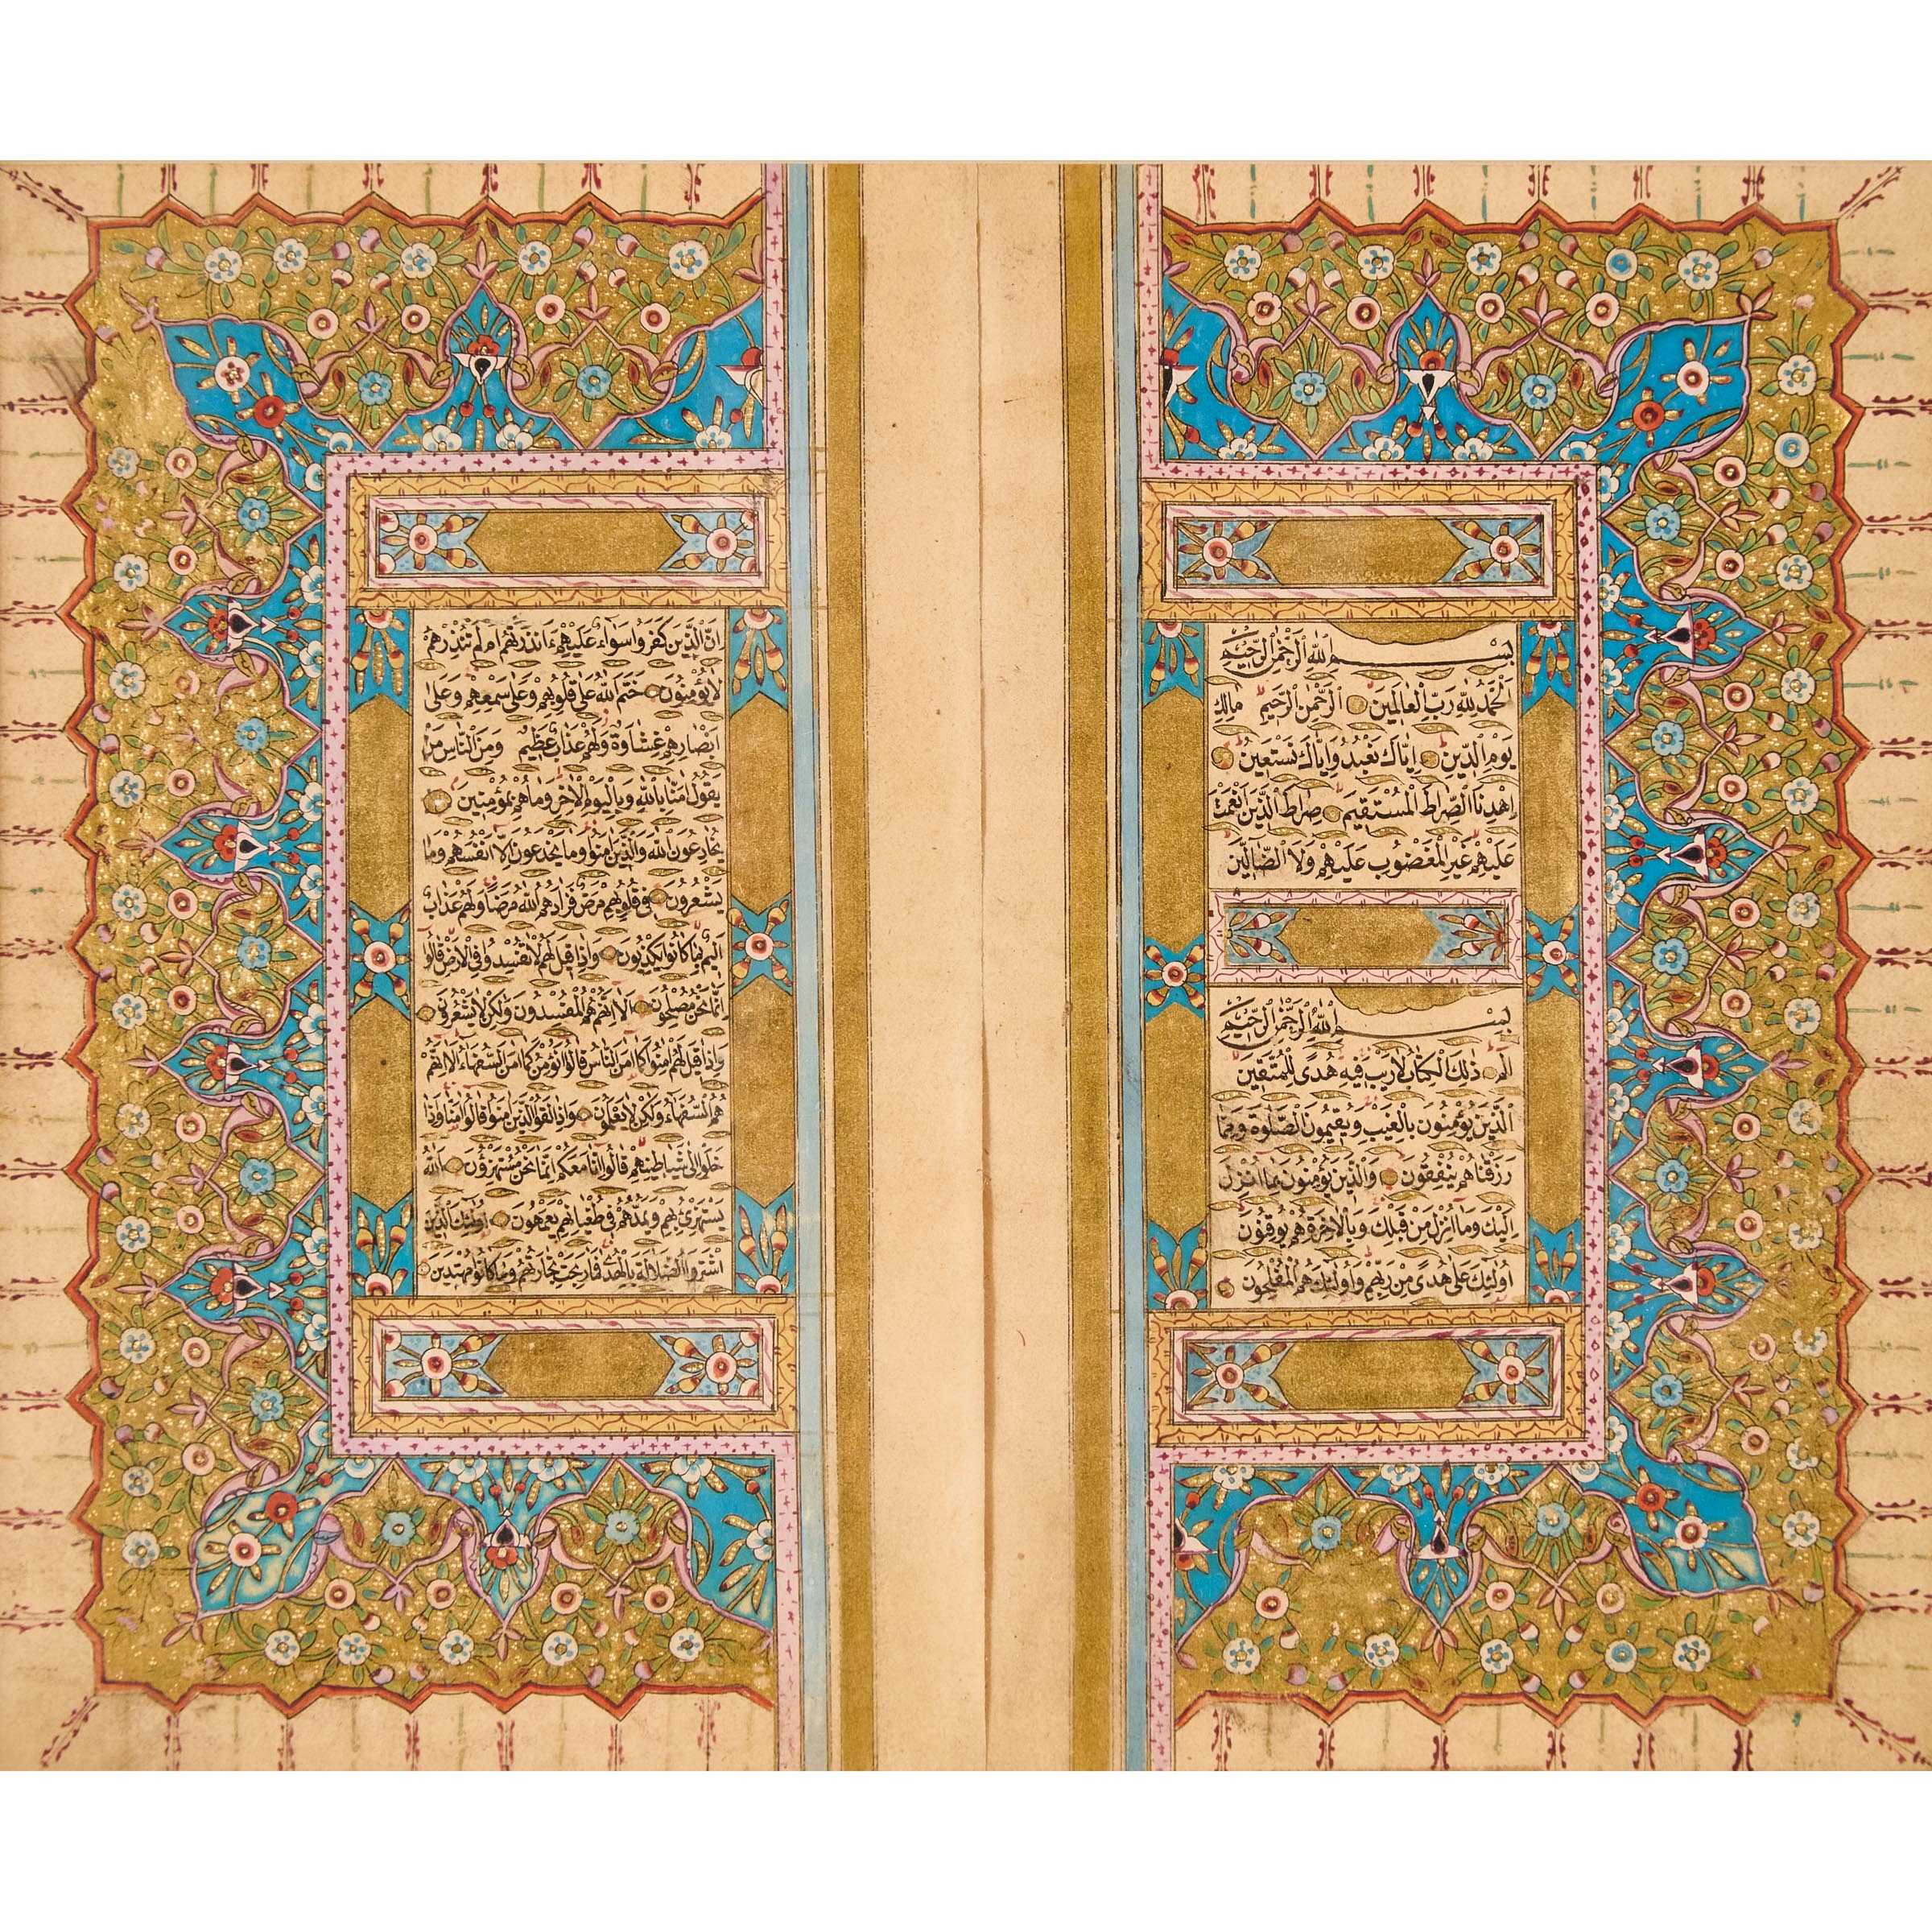 بِسْمِ اللهِ الرَّحْمٰنِ الرَّحِيمِ
اَلْحَمْدُ لِلّٰهِ رَبِّ الْعَالَمِينَ اَلرَّحْمٰنِ الرَّحِيمِ مَالِكِ
يَوْمِ الدِّينِ اِيَّاكَ نَعْبُدُ وَاِيَّاكَ نَسْتَعِينُ
اِهْدِنَا الصِّرَاطَ الْمُسْتَقِيمَ صِرَاطَ الَّذِينَ اَنْعَمْتَ
عَلَيْهِمْ غَيْرِ الْمَغْضُوبِ عَلَيْهِمْ وَلَا الضَّالِّينَ
بِسْمِ اللهِ الرَّحْمٰنِ الرَّحِيمِ
الم ذٰلِكَ الْكِتَابُ لَا رَيْبَ فِيهِ هُدًى لِلْمُتَّقِينَ
اَلَّذِينَ يُؤْمِنُونَ بِالْغَيْبِ وَيُقِيمُونَ الصَّلٰوةَ وَمِمَّا
رَزَقْنَاهُمْ يُنْفِقُونَ وَالَّذِينَ يُؤْمِنُونَ بِمَا اُنْزِلَ
اِلَيْكَ وَمَا اُنْزِلَ مِنْ قَبْلِكَ وَبِالْاٰخِرَةِ هُمْ يُوقِنُونَ
اُولٰئِكَ عَلٰى هُدًى مِنْ رَبِّهِمْ وَاُولٰئِكَ هُمُ الْمُفْلِحُونَ
اِنَّ الَّذِينَ كَفَرُوا سَوَاءٌ عَلَيْهِمْ ءَاَنْذَرْتَهُمْ اَمْ لَمْ تُنْذِرْهُمْ
لَا يُؤْمِنُونَ خَتَمَ اللهُ عَلٰى قُلُوبِهِمْ وَعَلٰى سَمْعِهِمْ وَعَلٰى
اَبْصَارِهِمْ غِشَاوَةٌ وَلَهُمْ عَذَابٌ عَظِيمٌ وَمِنَ النَّاسِ مَنْ
يَقُولُ اٰمَنَّا بِاللهِ وَبِالْيَوْمِ الْاٰخِرِ وَمَا هُمْ بِمُؤْمِنِينَ
يُخَادِعُونَ اللهَ وَالَّذِينَ اٰمَنُوا وَمَا يَخْدَعُونَ اِلَّا اَنْفُسَهُمْ وَمَا
يَشْعُرُونَ فِي قُلُوبِهِمْ مَرَضٌ فَزَادَهُمُ اللهُ مَرَضًا وَلَهُمْ عَذَابٌ
اَلِيمٌ بِمَا كَانُوا يَكْذِبُونَ وَاِذَا قِيلَ لَهُمْ لَا تُفْسِدُوا فِي الْاَرْضِ قَالُوا
اِنَّمَا نَحْنُ مُصْلِحُونَ اَلَا اِنَّهُمْ هُمُ الْمُفْسِدُونَ وَلٰكِنْ لَا يَشْعُرُونَ
وَاِذَا قِيلَ لَهُمْ اٰمِنُوا كَمَا اٰمَنَ النَّاسُ قَالُوا اَنُؤْمِنُ كَمَا اٰمَنَ السُّفَهَاءُ اَلَا اِنَّهُمْ
هُمُ السُّفَهَاءُ وَلٰكِنْ لَا يَعْلَمُونَ وَاِذَا لَقُوا الَّذِينَ اٰمَنُوا قَالُوا اٰمَنَّا وَاِذَا
خَلَوْا اِلٰى شَيَاطِينِهِمْ قَالُوا اِنَّا مَعَكُمْ اِنَّمَا نَحْنُ مُسْتَهْزِؤُنَ اَللهُ
يَسْتَهْزِئُ بِهِمْ وَيَمُدُّهُمْ فِي طُغْيَانِهِمْ يَعْمَهُونَ اُولٰئِكَ الَّذِينَ
اشْتَرَوُا الضَّلَالَةَ بِالْهُدٰى فَمَا رَبِحَتْ تِجَارَتُهُمْ وَمَا كَانُوا مُهْتَدِينَ